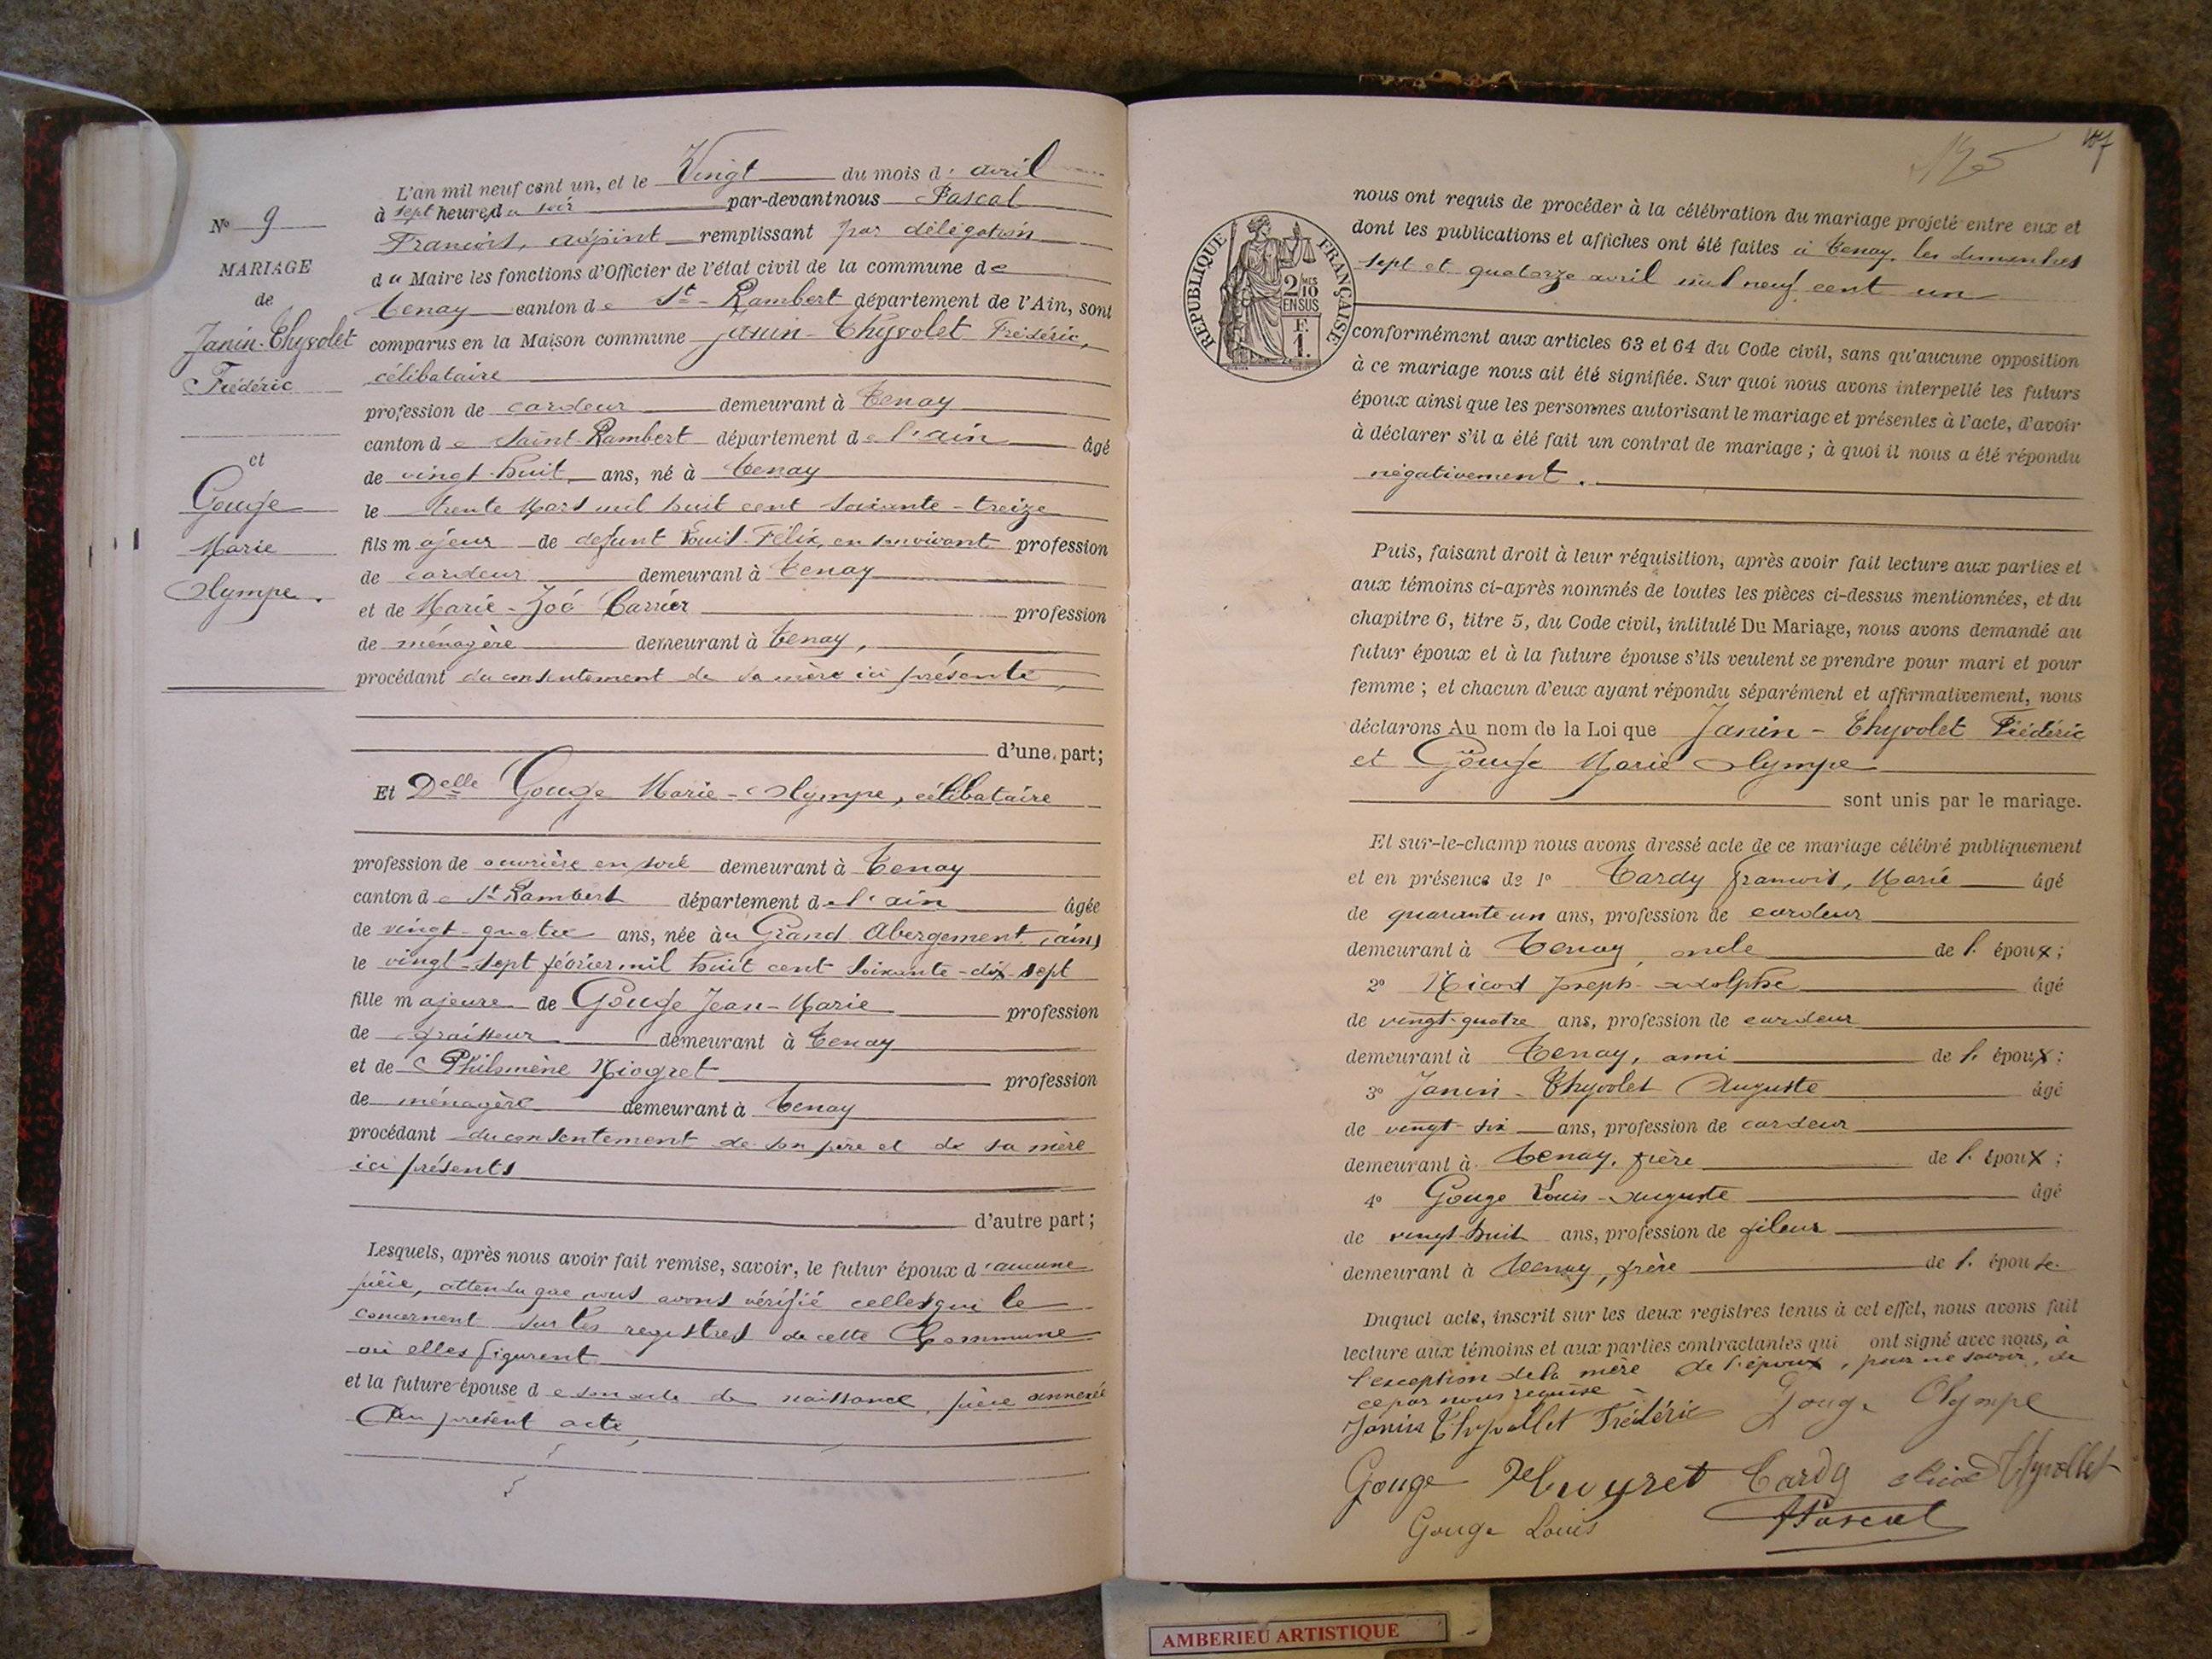 N° 9
MARIAGE
de
Janin-Thyvolet
Frédéric
et
Gouge
Marie
Olympe.
L'an mil neuf cent un, et le Vingt du mois d'avril
à sept heures du soir par-devant nous Pascal
François, adjoint remplissant par délégation
du Maire les fonctions d'Officier de l'état civil de la commune de
Tenay canton de St-Rambert département de l'Ain, sont
comparus en la Maison commune Janin-Thyvolet Frédéric,
célibataire
profession de cardeur demeurant à Tenay
canton de Saint-Rambert département de l'ain âgé
de vingt-huit ans, né à Tenay
le trente Mars mil huit cent soixante-treize
fils majeur de defunt Louis-Félix, en son vivant profession
de cardeur demeurant à Tenay
et de Marie-Zoé Carrier profession
de ménagère demeurant à Tenay,
procédant du consentement de sa mère ici présente,
d'une part;
Et Delle Gouge Marie-Olympe, célibataire
profession de ouvrière en soie demeurant à Tenay
canton de St Rambert département de l'ain âgée
de vingt-quatre ans, née au Grand Abergement (ain)
le vingt-sept février mil huit cent soixante-dix-sept
fille majeure de Gouge Jean-Marie profession
de graisseur demeurant à Tenay
et de Philomène Niogret profession
de ménagère demeurant à Tenay
procédant du consentement de son père et de sa mère
ici présents
d'autre part;
Lesquels, après nous avoir fait remise, savoir, le futur époux d'aucune
pièce, attendu que nous avons vérifié celles qui le
concernent sur les registres de cette Commune
où elles figurent
et la future épouse de son acte de naissance, pièce annexée
au présent acte,
175
nous ont requis de procéder à la célébration du mariage projeté entre eux et
dont les publications et affiches ont été faites à Tenay, les dimanches
sept et quatorze avril mil neuf cent un
RÉPUBLIQUE FRANÇAISE
2/10MES
EN SUS
F.
1.
conformément aux articles 63 et 64 du Code civil, sans qu'aucune opposition
à ce mariage nous ait été signifiée. Sur quoi nous avons interpellé les futurs
époux ainsi que les personnes autorisant le mariage et présentes à l'acte, d'avoir
à déclarer s'il a été fait un contrat de mariage; à quoi il nous a été répondu
négativement.
Puis, faisant droit à leur réquisition, après avoir fait lecture aux parties et
aux témoins ci-après nommés de toutes les pièces ci-dessus mentionnées, et du
chapitre 6, titre 5, du Code civil, intitulé Du Mariage, nous avons demandé au
futur époux et à la future épouse s'ils veulent se prendre pour mari et pour
femme; et chacun d'eux ayant répondu séparément et affirmativement, nous
déclarons Au nom de la Loi que Janin-Thyvolet Frédéric
et Gouge Marie Olympe
sont unis par le mariage.
Et sur-le-champ nous avons dressé acte de ce mariage célébré publiquement
et en présence de 1° Tardy François, Marie âgé
de quarante-un ans, profession de cardeur
demeurant à Tenay, oncle de l'époux;
2° Joseph-Adolphe âgé
de vingt-quatre ans, profession de cardeur
demeurant à Tenay, ami de l'époux;
3° Janin-Thyvolet Auguste âgé
de vingt-six ans, profession de cardeur
demeurant à Tenay, frère de l'époux;
4° Gouge Louis-Auguste âgé
de vingt-huit ans, profession de fileur
demeurant à Tenay, frère de l'épouse.
Duquel acte, inscrit sur les deux registres tenus à cet effet, nous avons fait
lecture aux témoins et aux parties contractantes qui ont signé avec nous, à
l'exception de la mère de l'époux, pour ne savoir, de
ce par nous requise
Janin Thyvollet Frédéric Gouge Olympe
Gouge Tardy Thyvollet
Gouge Louis Pascal
AMBERIEU ARTISTIQUE